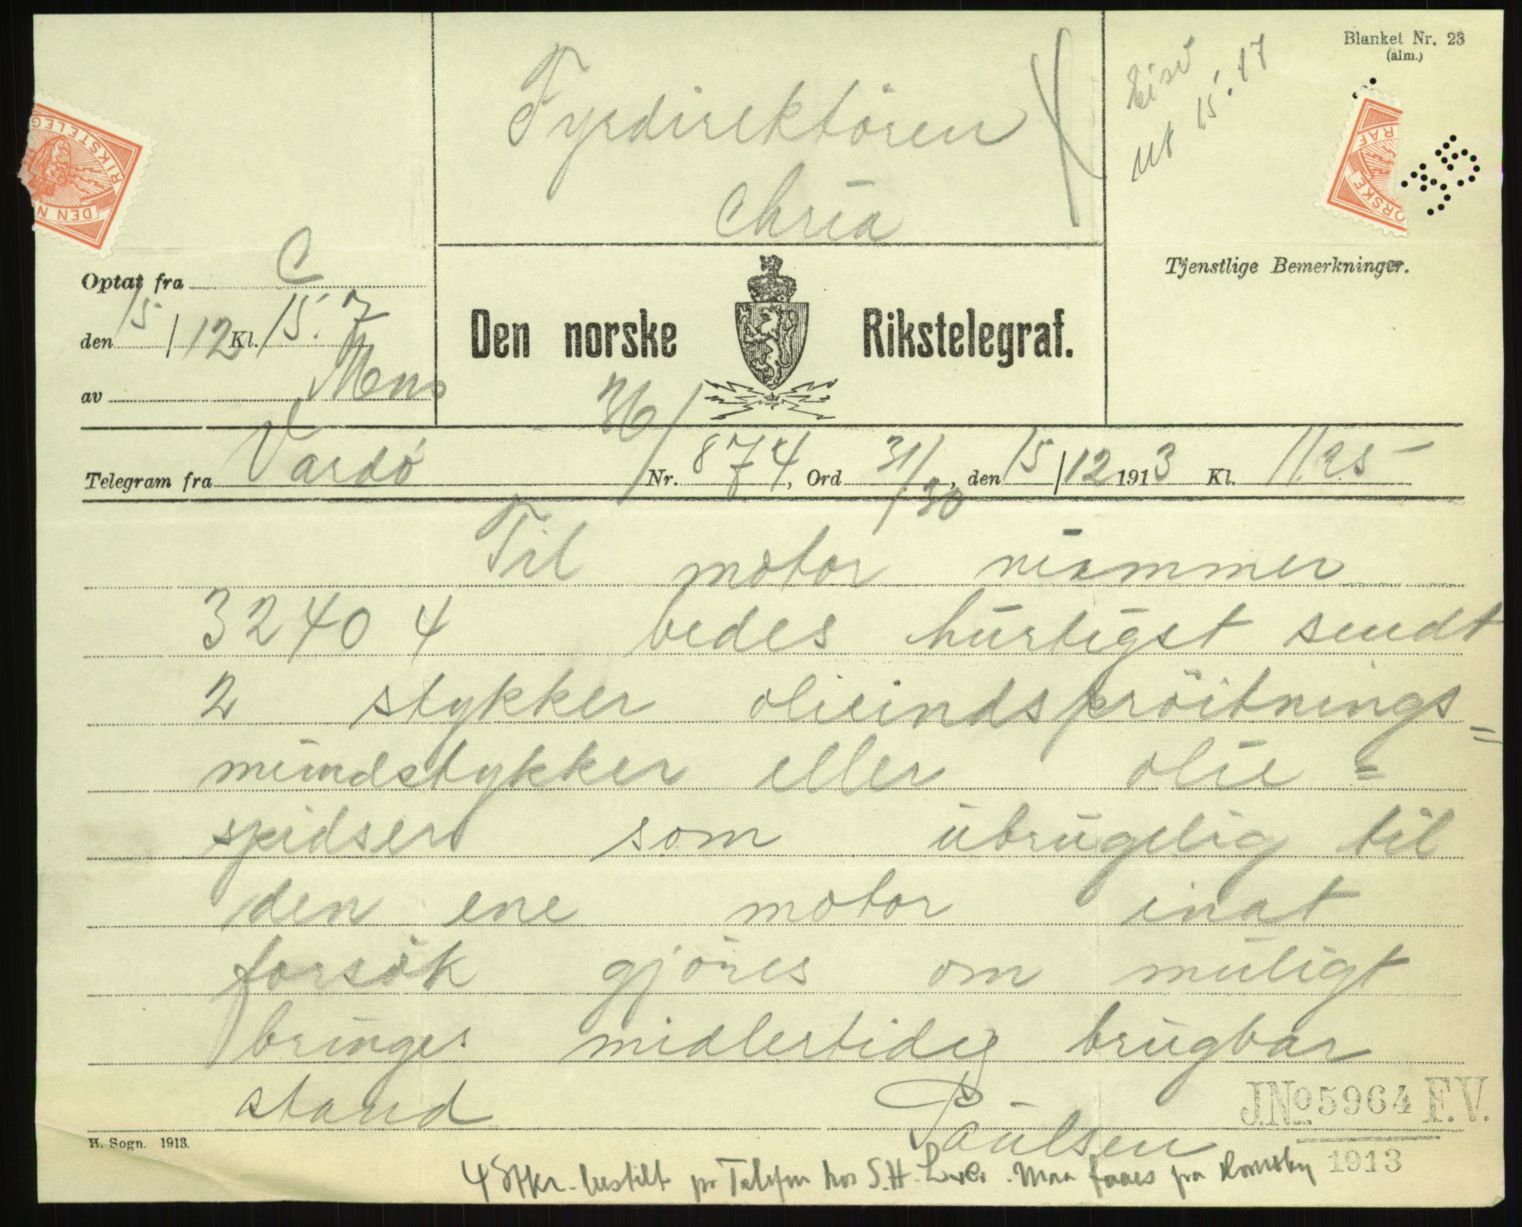 Blanket Nr. 23
(alm.)
Fyrdirektören
Chria
15.17
DEN NORSKE RIKSTELEGRAF
35
Optat fra C
den 15/12 Kl. 15.7
av Mens
Den norske Rikstelegraf.
Tjenstlige Bemerkninger.
36/
Telegram fra Vardö Nr. 874, Ord 31/30, den 15/12 1913 Kl. 11.25
Til motor nummer
32404 bedes hurtigst sendt
2 stykker olieindspröitnings=
mundstykker eller olie=
spidser som ubrugelig til
den ene motor inat
forsök gjöres om muligt
bringes midlertidig brugbar
stand
Paulsen
J.No 5964 F.V.
1913
H. Sogn. 1913.
4 Stkr. bestilt pr Telefon hos S.H. Maa faaes fra Hornsby